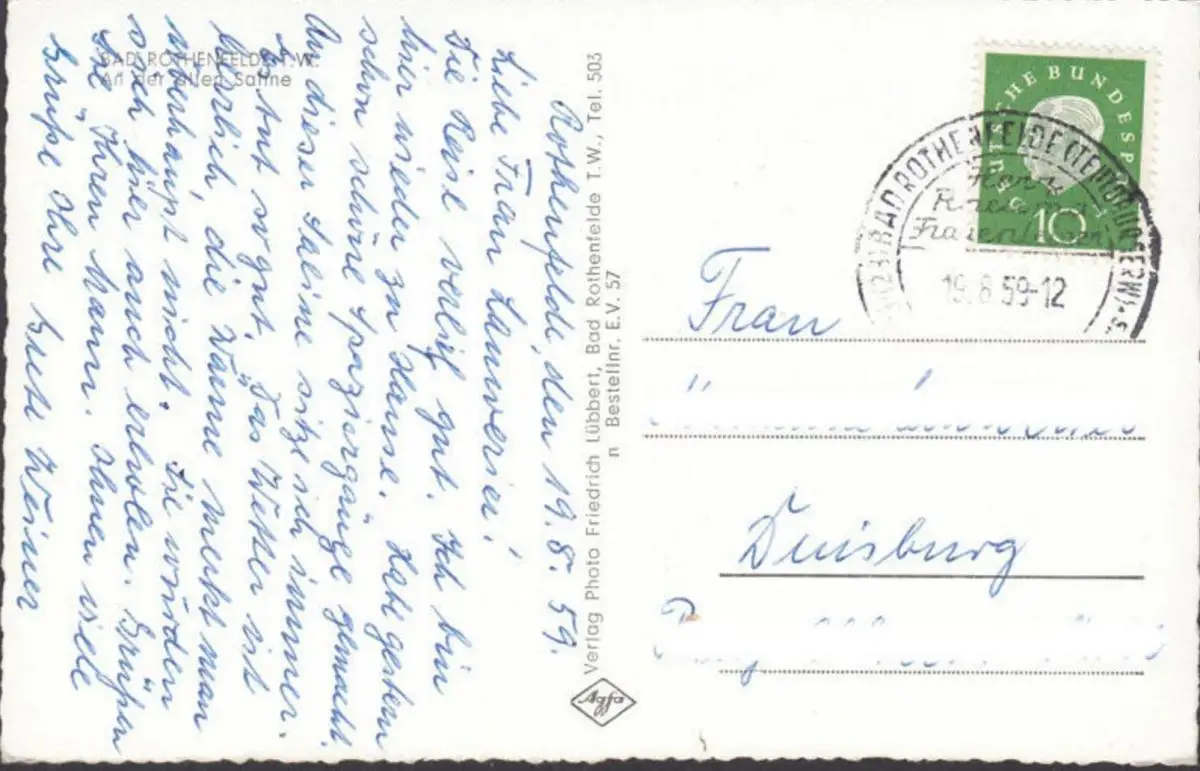 BAD ROTHENFELDE T.W.
An der alten Saline
Rothenfelde, den 19.8.59.
Liebe Frau
Die Reise verlief gut. Ich bin
hier wieder zu Hause. Hab gestern
schon schöne Spaziergänge gemacht.
An dieser Saline sitze ich immer.
Es tut so gut. Das Wetter ist
herrlich, die Wärme merkt man
überhaupt nicht. Sie würden
sich hier auch erholen. Grüßen
Sie Ihren Mann. Ihnen viele
Grüße Ihre
Verlag Photo Friedrich Lübbert, Bad Rothenfelde T.W., Tel. 503
n Bestellnr. E.V. 57
Agfa
DEUTSCHE BUNDESPOST
10
BAD ROTHENFELDE (TEUTOBURGERW)
19.8.59-12
Frau
Duisburg